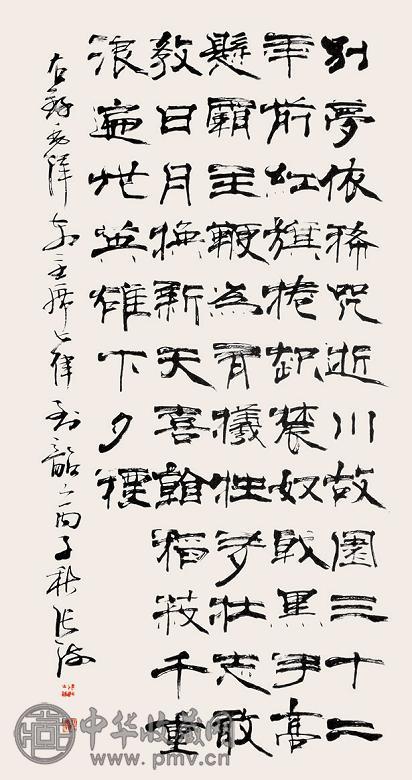 别夢依稀咒逝川故園三十二
年前紅旗捲起農奴戟黑手高
懸霸主鞭為有犧牲多壯志敢
教日月換新天喜看稻菽千重
浪遍地英雄下夕煙
右録毛澤東主席七律到韶山丙子秋張海
中华收藏网
www.pmv.cn